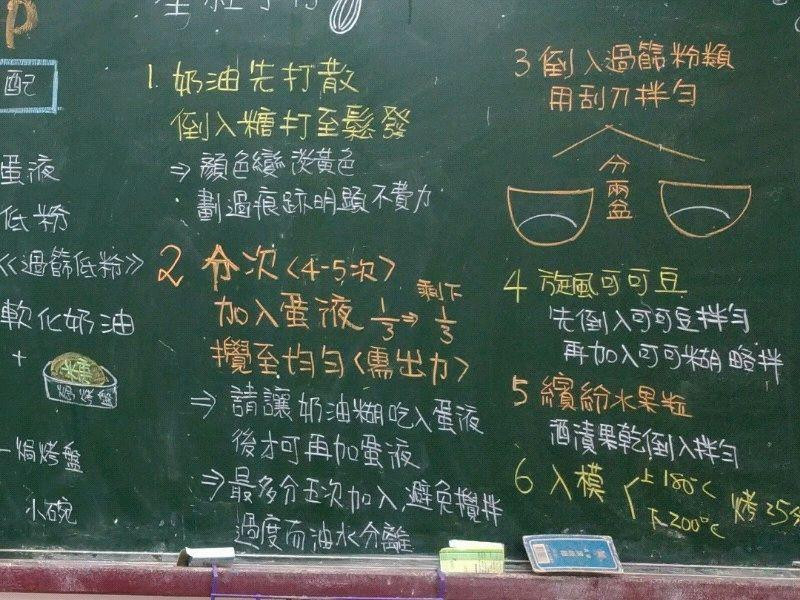 配
蛋液
低粉
《過篩低粉》
軟化奶油
+
糖
焗烤盤
焗烤盤
小碗
1. 奶油先打散
倒入糖打至鬆發
⇒ 顏色變淡黃色
劃過痕跡明顯不費力
2 分次〈4-5次〉
加入蛋液 1/3 ⇒ 剩下 1/3
攪至均勻〈需出力〉
⇒ 請讓奶油糊吃入蛋液
後才可再加蛋液
⇒ 最多分五次加入,避免攪拌
過度而油水分離
3 倒入過篩粉類
用刮刀拌勻
分兩盆
4 旋風可可豆
先倒入可可豆拌勻
再加入可可糊略拌
5 繽紛水果粒
酒漬果乾倒入拌勻
6 入模 上180℃
下200℃
烤25分